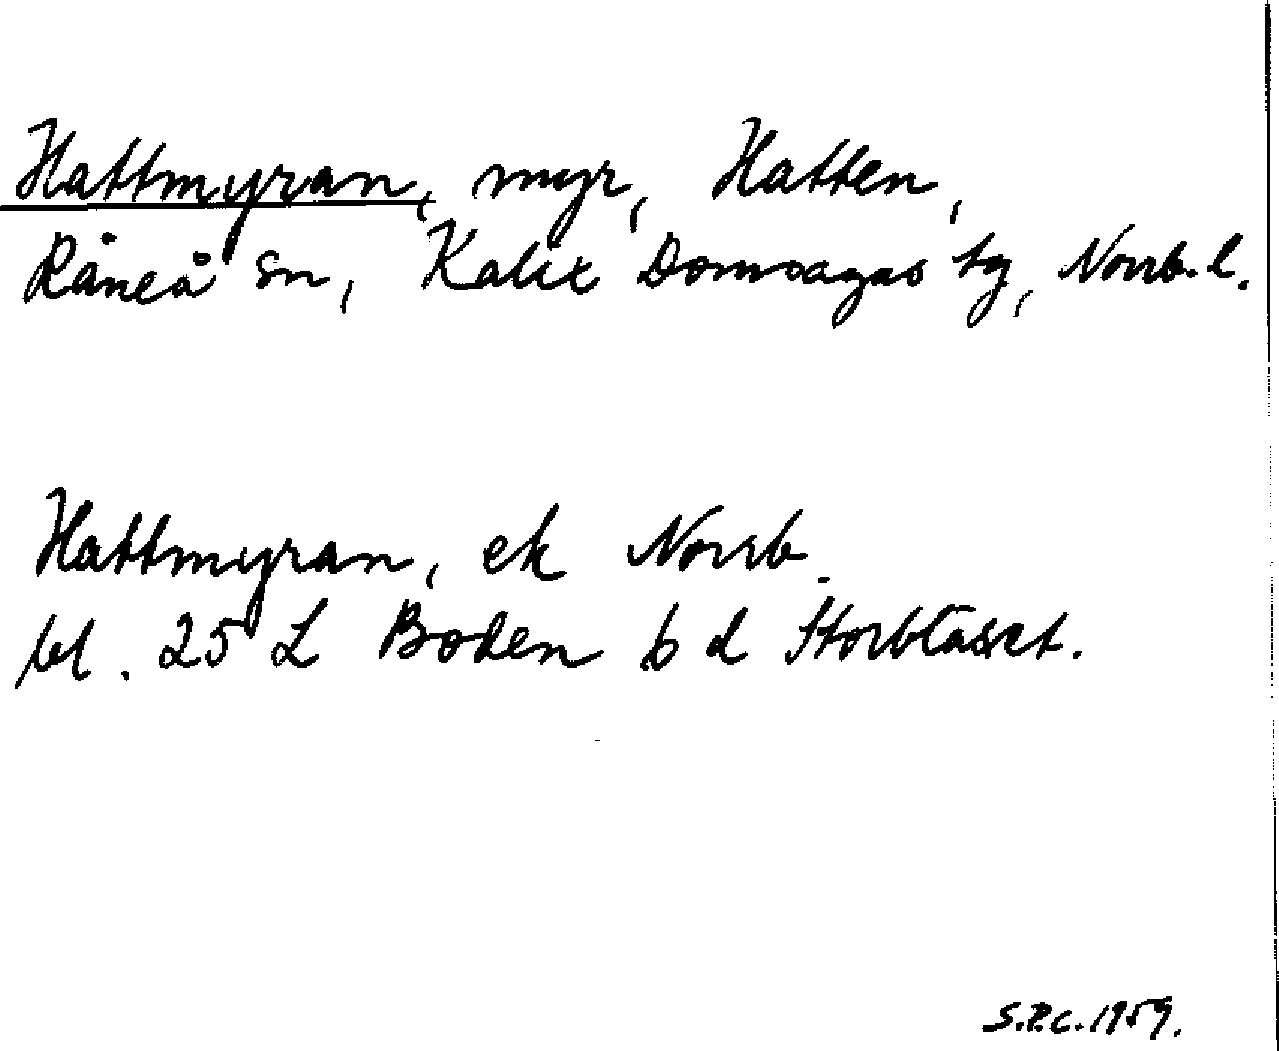 Hattmyran, myr, Hatten,
Råneå sn, Kalix Domsagas tg, Norrb. l.
Hattmyran, ek Norrb.
bl. 25 L Boden b d Storblåset.
S.P.C. 1959.